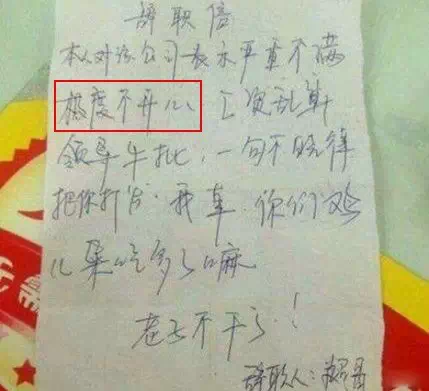 辞职信
本人对该公司表示严重不满
极度不开心、工资乱算
领导牛批，一句不晓得
把你打发.我草.你们鸡
儿果吃多了嘛
老子不干了！
辞职人：